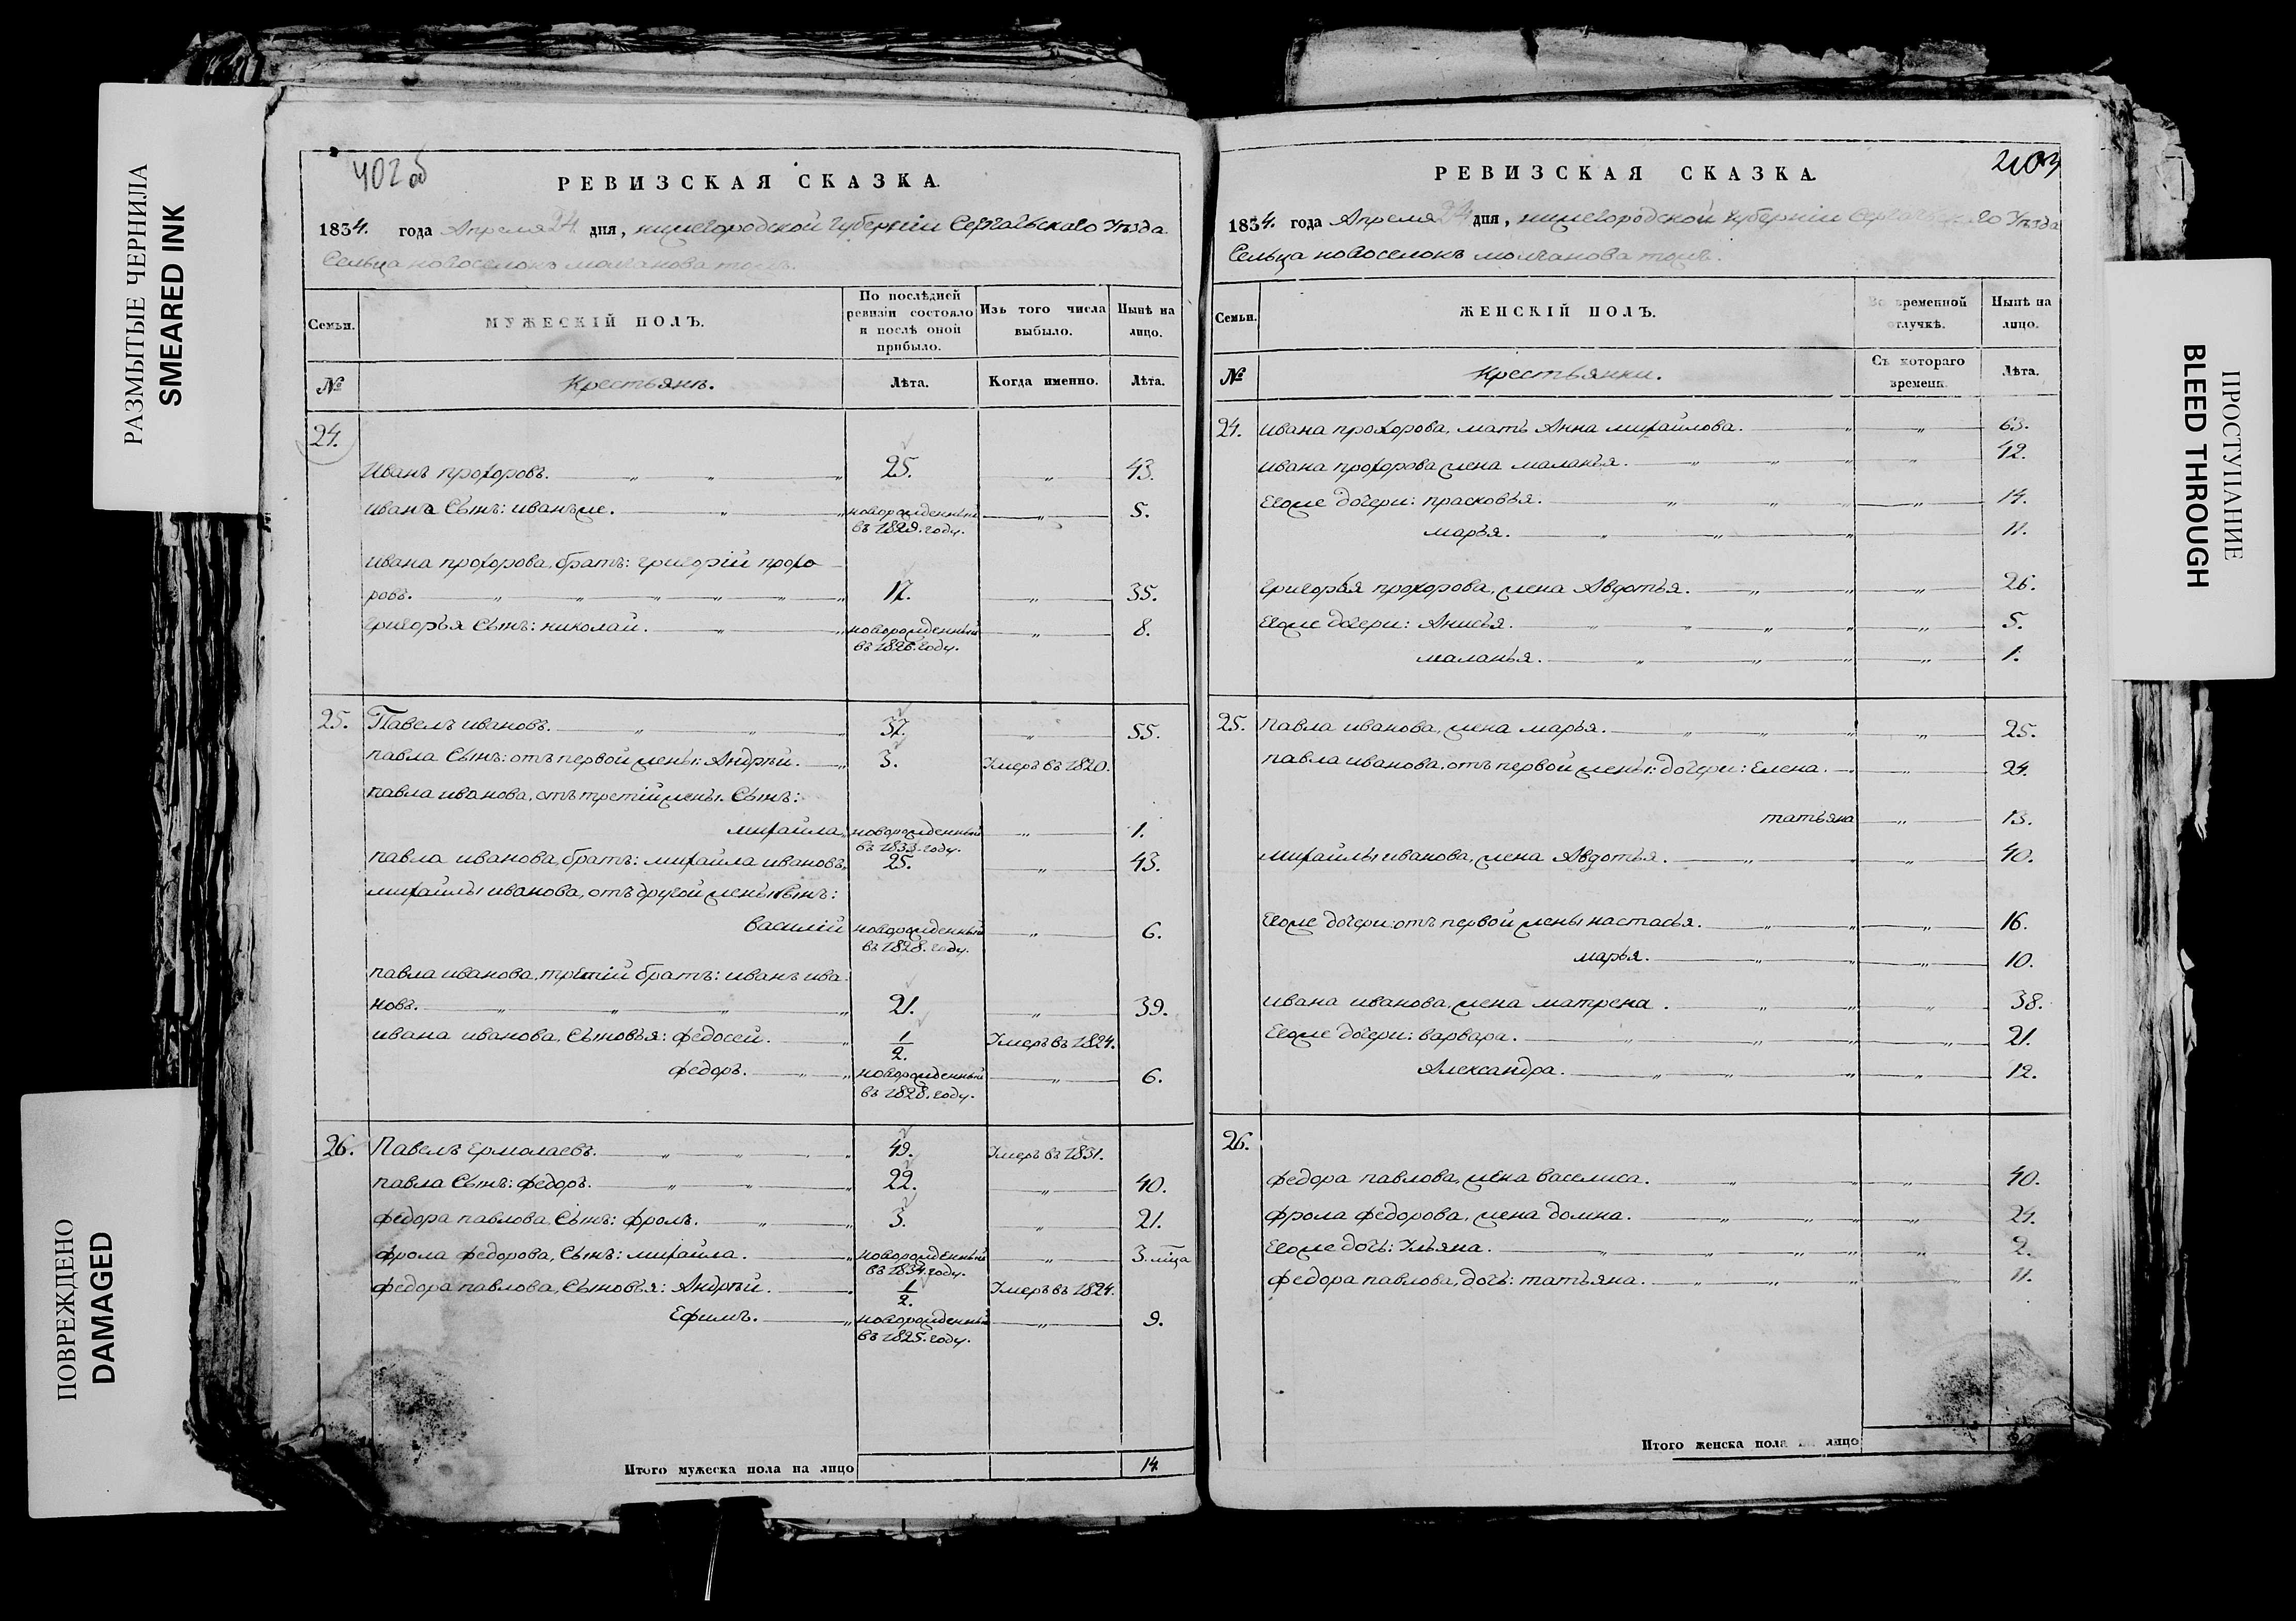 РАЗМЫТЫЕ ЧЕРНИЛА
SMEARED INK
ПОВРЕЖДЕНО
DAMAGED
402 об
РЕВИЗСКАЯ СКАЗКА.
1834. года Апреля 24. дня, нижегородской губернiи Сергачьскаго Уѣзда
Сельца новоселокъ молчанова тожъ.
Семьи.
МУЖЕСКIЙ ПОЛЪ.
По послѣдней ревизiи состояло и послѣ оной прибыло.
Изъ того числа выбыло.
Нынѣ на лицо.
№
Крестьянъ.
Лѣта.
Когда именно.
Лѣта.
24.
Иванъ прохоровъ. 25. „ 43.
ивана Сынъ: иванъже. новорожденный въ 1829. году. „ 5.
ивана прохорова, братъ: григорiй прохо
ровъ. 17. „ 35.
григорья Сынъ: николай. новорожденный въ 1826. году. „ 8.
25. Павелъ ивановъ. 37. „ 55.
павла Сынъ: отъ первой жены: Андрѣй. 3. Умеръ въ 1820.
павла иванова, отъ третiй жены. Сынъ:
михайла новорожденный въ 1833. году. „ 1.
павла иванова, братъ: михайла ивановъ, 25. „ 43.
михайлы иванова, отъ другой жены Сынъ:
василiй новорожденный въ 1828. году. „ 6.
павла иванова, третiй братъ: иванъ ива
новъ. 21. „ 39.
ивана иванова, Сыновья: федосей. 1/2. Умеръ въ 1824.
федоръ. новорожденный въ 1828. году. „ 6.
26. Павелъ ермолаевъ. 49. Умеръ въ 1831.
павла Сынъ: федоръ. 22. „ 40.
федора павлова, Сынъ: фролъ. 3. „ 21.
фрола федорова, Сынъ: михайла. новорожденный въ 1834. году. „ 3. мца
федора павлова, Сыновья: Андрѣй. 1/2. Умеръ въ 1824.
Ефимъ. новорожденный въ 1825. году. „ 9.
Итого мужеска пола на лицо 14.
РЕВИЗСКАЯ СКАЗКА.
1834. года Апреля 24 дня, нижегородской губернiи Сергачьскаго Уѣзда
Сельца новоселокъ молчанова тожъ.
Семьи.
ЖЕНСКIЙ ПОЛЪ.
Во временной отлучкѣ.
Нынѣ на лицо.
№
Крестьянки.
Съ котораго времени.
Лѣта.
24. ивана прохорова, мать Анна михайлова. „ 63.
ивана прохорова жена маланья. „ 42.
Егоже дочери: прасковья. „ 14.
марья. „ 11.
григорья прохорова, жена Авдотья. „ 26.
Егоже дочери: Анисья. „ 5.
маланья. „ 1.
25. павла иванова, жена марья. „ 25.
павла иванова, отъ первой жены: дочери: Елена. „ 24.
татьяна „ 13.
михайлы иванова, жена Авдотья. „ 40.
Егоже дочери: отъ первой жены настасья. „ 16.
марья. „ 10.
ивана иванова, жена матрена. „ 38.
Егоже дочери: варвара. „ 21.
Александра. „ 12.
26.
федора павлова, жена василиса. „ 40.
фрола федорова, жена домна. „ 24.
Егоже дочь: Ульяна. „ 2.
федора павлова, дочь: татьяна. „ 11.
Итого женска пола на лицо
ПРОСТУПАНИЕ
BLEED THROUGH